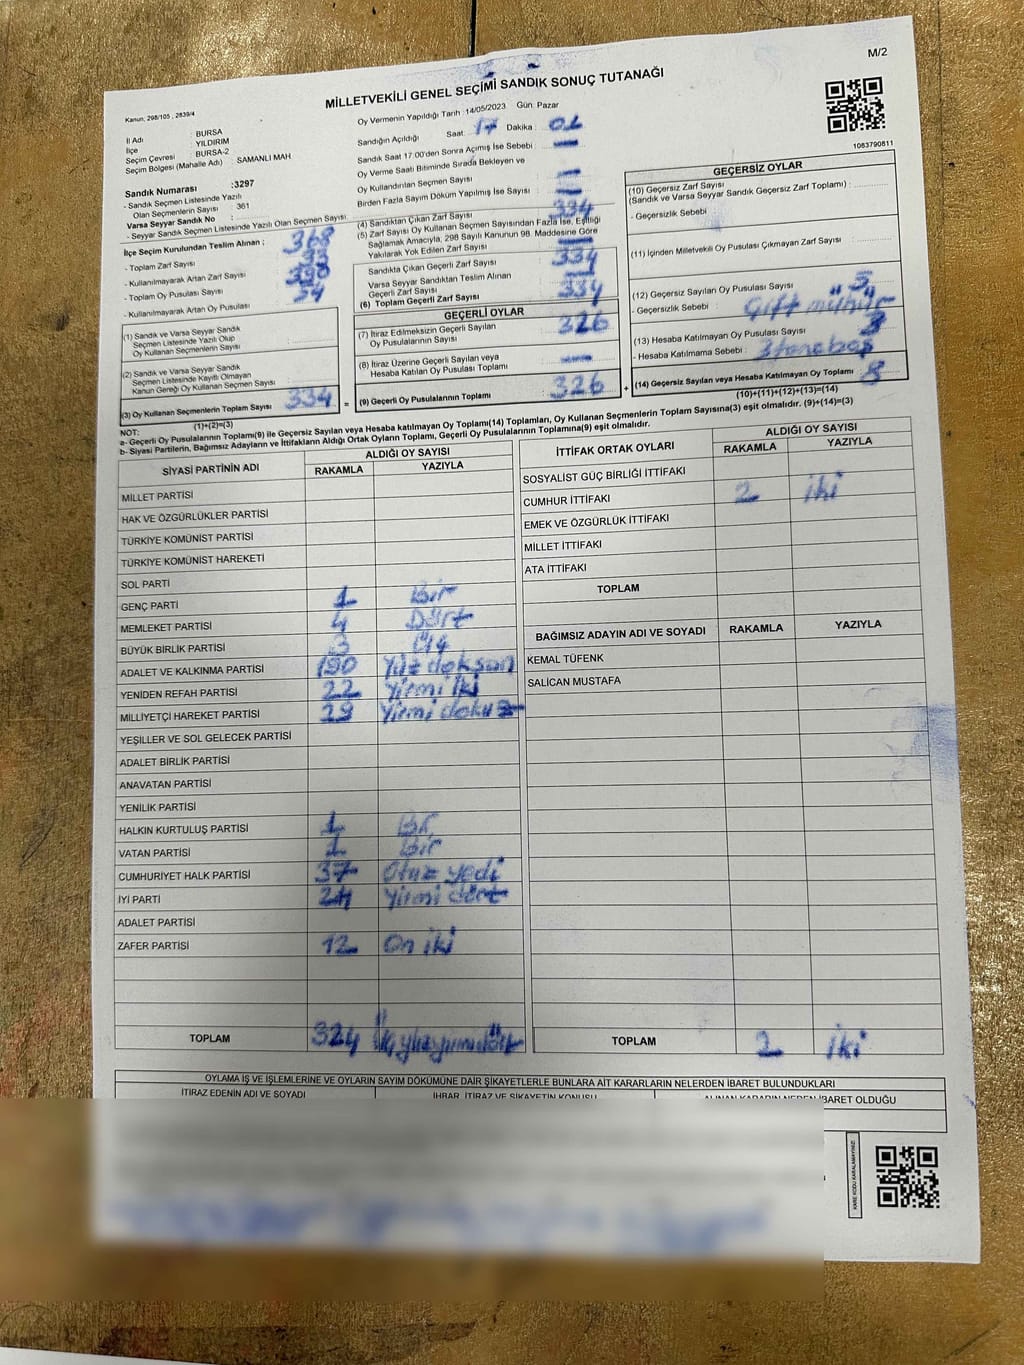 M/2
MİLLETVEKİLİ GENEL SEÇİMİ SANDIK SONUÇ TUTANAĞI
Kanun, 298/105 , 2839/4
İl Adı : BURSA
İlçe : YILDIRIM
Seçim Çevresi : BURSA-2
Seçim Bölgesi (Mahalle Adı) : SAMANLI MAH
Sandık Numarası :3297
- Sandık Seçmen Listesinde Yazılı
Olan Seçmenlerin Sayısı : 361
Varsa Seyyar Sandık No :
- Seyyar Sandık Seçmen Listesinde Yazılı Olan Seçmen Sayısı
İlçe Seçim Kurulundan Teslim Alınan ;
- Toplam Zarf Sayısı : 368
- Kullanılmayarak Artan Zarf Sayısı
- Toplam Oy Pusulası Sayısı
- Kullanılmayarak Artan Oy Pusulası 34
(1) Sandık ve Varsa Seyyar Sandık
Seçmen Listesinde Yazılı Olup
Oy Kullanan Seçmenlerin Sayısı
(2) Sandık ve Varsa Seyyar Sandık
Seçmen Listesinde Kayıtlı Olmayan
Kanun Gereği Oy Kullanan Seçmen Sayısı
(3) Oy Kullanan Seçmenlerin Toplam Sayısı 334
(1)+(2)=(3)
Oy Vermenin Yapıldığı Tarih :14/05/2023 Gün: Pazar
Sandığın Açıldığı Saat: 17 Dakika : 01
Sandık Saat 17:00'den Sonra Açımış İse Sebebi : —
Oy Verme Saati Bitiminde Sırada Bekleyen ve
Oy Kullandırılan Seçmen Sayısı : —
Birden Fazla Sayım Döküm Yapılmış İse Sayısı : —
(4) Sandıktan Çıkan Zarf Sayısı : 334
(5) Zarf Sayısı Oy Kullanan Seçmen Sayısından Fazla İse, Eşitliği
Sağlamak Amacıyla, 298 Sayılı Kanunun 98. Maddesine Göre
Yakılarak Yok Edilen Zarf Sayısı : —
Sandıkta Çıkan Geçerli Zarf Sayısı : 334
Varsa Seyyar Sandıktan Teslim Alınan
Geçerli Zarf Sayısı : —
(6) Toplam Geçerli Zarf Sayısı : 334
GEÇERLİ OYLAR
(7) İtiraz Edilmeksizin Geçerli Sayılan
Oy Pusulalarının Sayısı : 326
(8) İtiraz Üzerine Geçerli Sayılan veya
Hesaba Katılan Oy Pusulası Toplamı : —
= (9) Geçerli Oy Pusulalarının Toplamı : 326 +
1083790811
GEÇERSİZ OYLAR
(10) Geçersiz Zarf Sayısı
(Sandık ve Varsa Seyyar Sandık Geçersiz Zarf Toplamı) :
- Geçersizlik Sebebi :
(11) İçinden Milletvekili Oy Pusulası Çıkmayan Zarf Sayısı :
(12) Geçersiz Sayılan Oy Pusulası Sayısı : 5
- Geçersizlik Sebebi : Çift mühür
(13) Hesaba Katılmayan Oy Pusulası Sayısı : 3
- Hesaba Katılmama Sebebi : 3 tane boş
(14) Geçersiz Sayılan veya Hesaba Katılmayan Oy Toplamı : 8
(10)+(11)+(12)+(13)=(14)
NOT:
a- Geçerli Oy Pusulalarının Toplamı(9) ile Geçersiz Sayılan veya Hesaba katılmayan Oy Toplamı(14) Toplamları, Oy Kullanan Seçmenlerin Toplam Sayısına(3) eşit olmalıdır. (9)+(14)=(3)
b- Siyasi Partilerin, Bağımsız Adayların ve İttifakların Aldığı Ortak Oyların Toplamı, Geçerli Oy Pusulalarının Toplamına(9) eşit olmalıdır.
SİYASİ PARTİNİN ADI ALDIĞI OY SAYISI
RAKAMLA YAZIYLA
MİLLET PARTİSİ
HAK VE ÖZGÜRLÜKLER PARTİSİ
TÜRKİYE KOMÜNİST PARTİSİ
TÜRKİYE KOMÜNİST HAREKETİ
SOL PARTİ
GENÇ PARTİ 1 Bir
MEMLEKET PARTİSİ 4 Dört
BÜYÜK BİRLİK PARTİSİ 3 Üç
ADALET VE KALKINMA PARTİSİ 190 Yüz doksan
YENİDEN REFAH PARTİSİ 22 Yirmi iki
MİLLİYETÇİ HAREKET PARTİSİ 29 Yirmi dokuz
YEŞİLLER VE SOL GELECEK PARTİSİ
ADALET BİRLİK PARTİSİ
ANAVATAN PARTİSİ
YENİLİK PARTİSİ
HALKIN KURTULUŞ PARTİSİ 1 Bir
VATAN PARTİSİ 1 Bir
CUMHURİYET HALK PARTİSİ 37 Otuz yedi
İYİ PARTİ 24 Yirmi dört
ADALET PARTİSİ
ZAFER PARTİSİ 12 On iki
TOPLAM 324 Üç yüz yirmi dört
İTTİFAK ORTAK OYLARI ALDIĞI OY SAYISI
RAKAMLA YAZIYLA
SOSYALİST GÜÇ BİRLİĞİ İTTİFAKI
CUMHUR İTTİFAKI 2 iki
EMEK VE ÖZGÜRLÜK İTTİFAKI
MİLLET İTTİFAKI
ATA İTTİFAKI
TOPLAM
BAĞIMSIZ ADAYIN ADI VE SOYADI RAKAMLA YAZIYLA
KEMAL TÜFENK
SALİCAN MUSTAFA
TOPLAM 2 iki
OYLAMA İŞ VE İŞLEMLERİNE VE OYLARIN SAYIM DÖKÜMÜNE DAİR ŞİKAYETLERLE BUNLARA AİT KARARLARIN NELERDEN İBARET BULUNDUKLARI
İTİRAZ EDENİN ADI VE SOYADI İHBAR, İTİRAZ VE ŞİKAYETİN KONUSU ALINAN KARARIN NEDEN İBARET OLDUĞU
KARE KODU KARALAMAYINIZ!